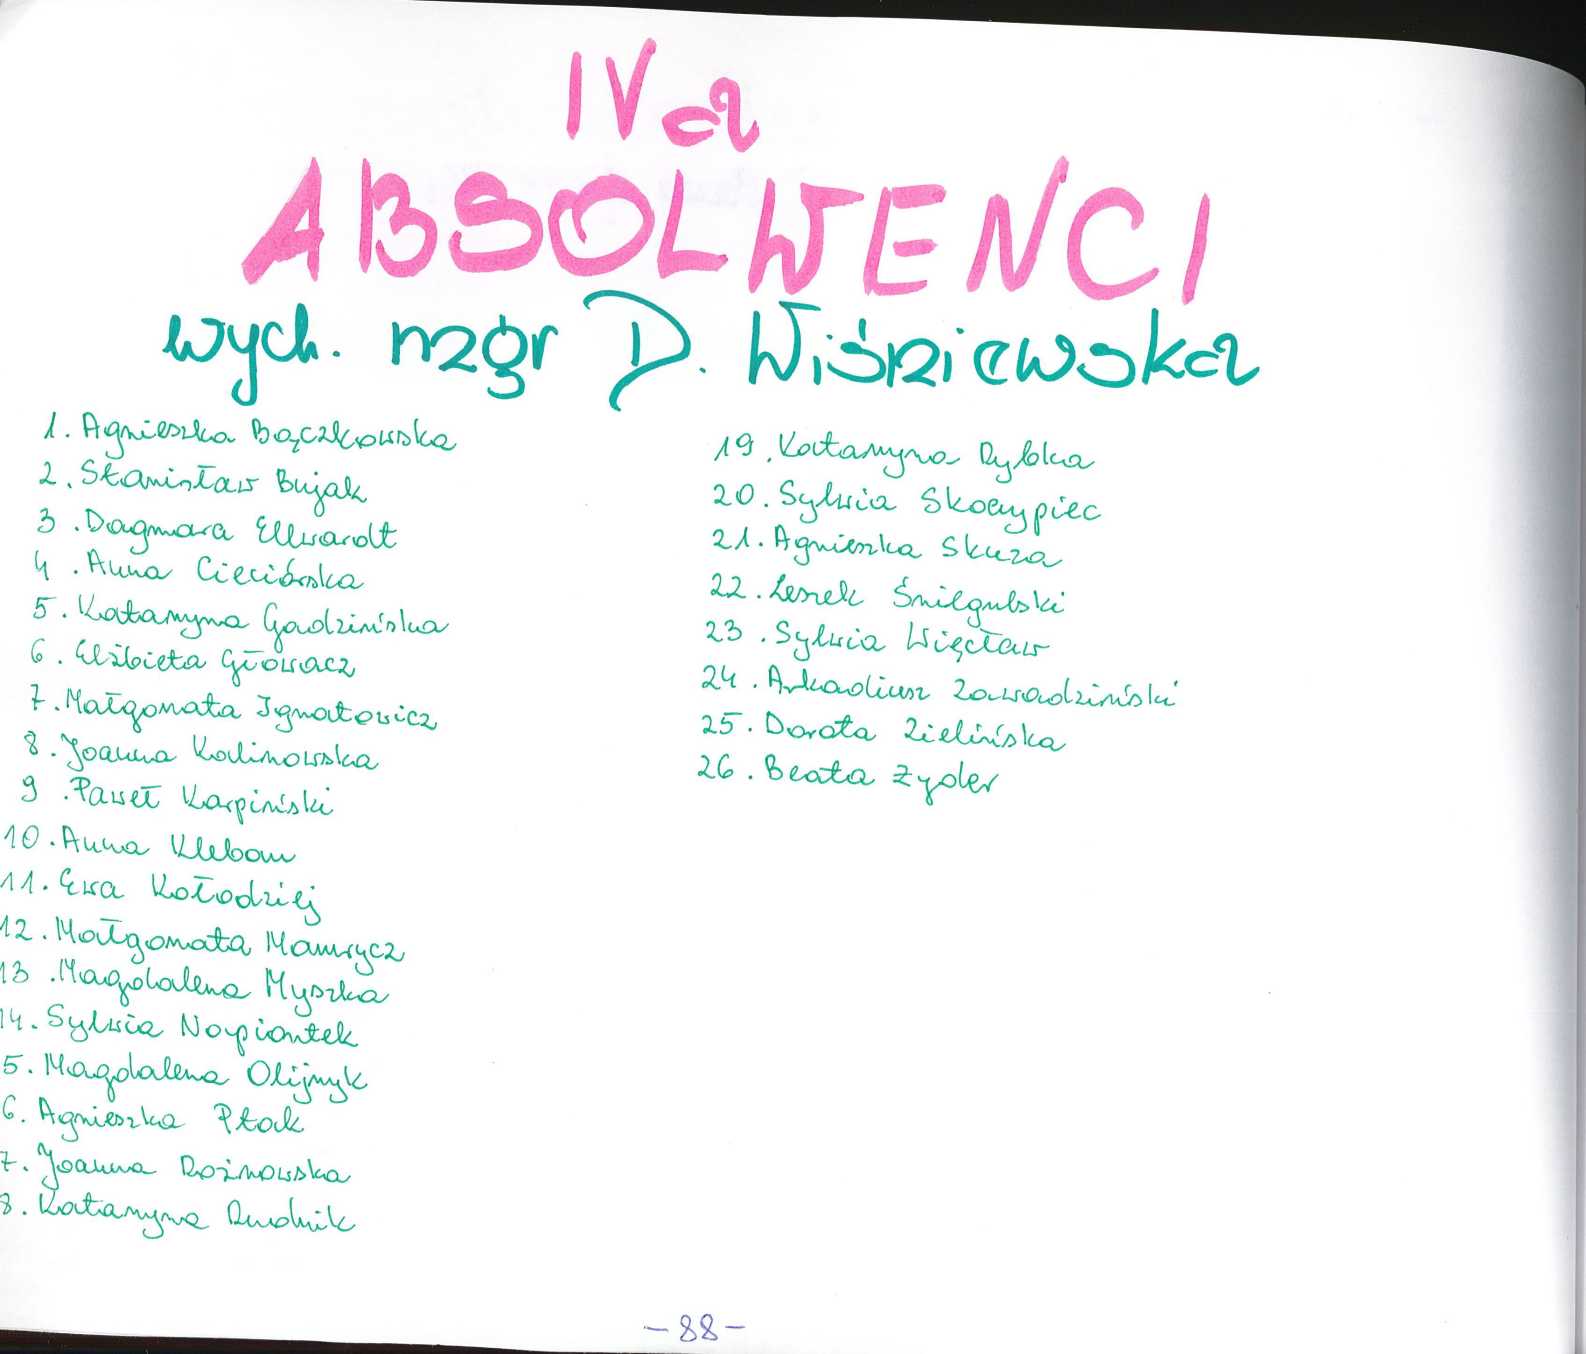 IV a
ABSOLWENCI
wych. mgr D. Wiśniewska
1. Agnieszka Bączkowska
2. Stanisław Bujak
3. Dagmara Ellwardt
4. Anna Cieciórska
5. Katarzyna Gadzińska
6. Elżbieta Głowacz
7. Małgorzata Ignatowicz
8. Joanna Kalinowska
9. Paweł Karpiński
10. Anna Klebow
11. Ewa Kołodziej
12. Małgorzata Mamrycz
13. Magdalena Myszka
14. Sylwia Napiontek
5. Magdalena Olijnyk
6. Agnieszka Ptak
7. Joanna Rożnowska
8. Katarzyna Rudnik
19. Katarzyna Rybka
20. Sylwia Skoczypiec
21. Agnieszka Skuza
22. Leszek Śmilgulski
23. Sylwia Więcław
24. Arkadiusz Zawadziński
25. Dorota Zielińska
26. Beata Zyder
- 88 -